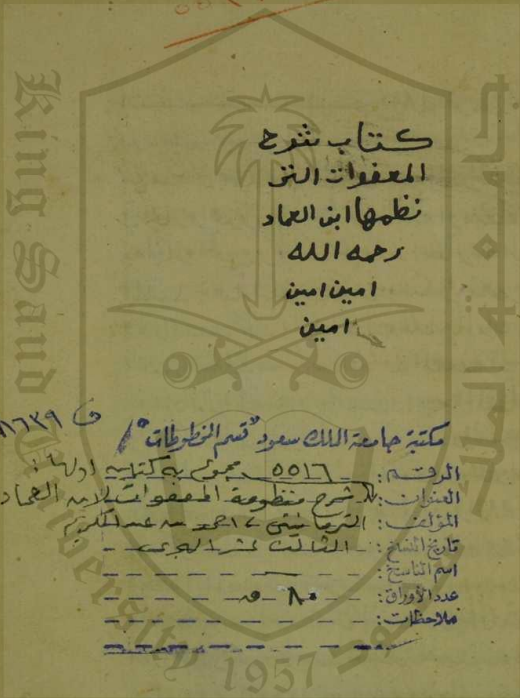 كتاب شرح
المعفوات التى
نظمها ابن العماد
رحمه الله
امين امين
امين
ف ١٦٣٩
مكتبة جامعة الملك سعود "قسم المخطوطات"
الرقم: ٥٥١٦ مجموع به كتابين اولها:
العنوان: شرح منظومة المعفوات لابن العماد
المؤلف: الترمانيني، احمد بن عبد الكريم
تاريخ النسخ: الثالث عشر الهجري
اسم الناسخ:
عدد الأوراق: ٨٠ ق
ملاحظات:
King Saud University
1957
جامعة الملك سعود